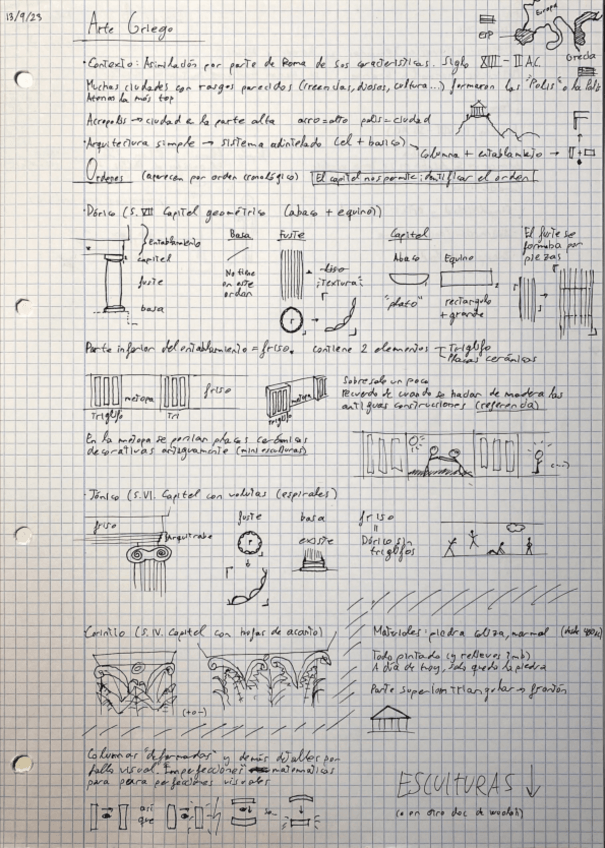 13/9/23
Arte Griego
Europa
esp
Grecia
·Contexto: Asimilación por parte de Roma de sus características. Siglo XIII - II A.C.
Muchas ciudades con rasgos parecidos (creencias, diosos, cultura...) formaron las "Polis" o la Polis
Atenas la más top
Acropolis → ciudad e la parte alta acro=alto polis=ciudad
·Arquitectura simple → sistema adintelado (el + basico) → columna + entablamiento →
Ordenes (aparecen por orden cronológico) El capitel nos permite identificar el orden!
·Dórico (S. VII Capitel geométrico (abaco + equino))
entablamiento
capitel
fuste
basa
Basa
No tiene en este orden
Fuste
Liso
¡Textura!
Capitel
Abaco
"plato"
Equino
rectangulo + grande
El fuste se formaba por piezas
Parte inferior del entablamiento = friso. contiene 2 elementos
Triglifo
Placas cerámicas
metopa
friso
Triglifo
Tri
metopa
Triglifo
Sobresale un poco
Recuerdo de cuando se hacían de madera las
antiguas construcciones (referencia)
En la metopa se ponían placas cerámicas
decorativas antiguamente (mini esculturas)
(...)
·Jónico (S.VI. Capitel con volutas (espirales)
friso
Arquitrabe
fuste
basa
existe
friso
=
Dórico sin
triglifos
Corintio (S. IV. Capitel con hojas de acanto)
(+o-)
Materiales: piedra caliza, normal
Todo pintado (y relleves tmb)
A día de hoy, solo queda la piedra
Parte superior triangular → frontón
Columnas "deformadas" y demás detalles por
fallo visual. Imperfecciones matemáticas
para perfecciones visuales
así
que
ESCULTURAS ↓